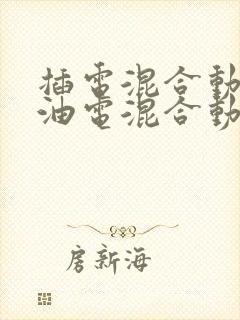 插電混合動
油電混合動
房新海